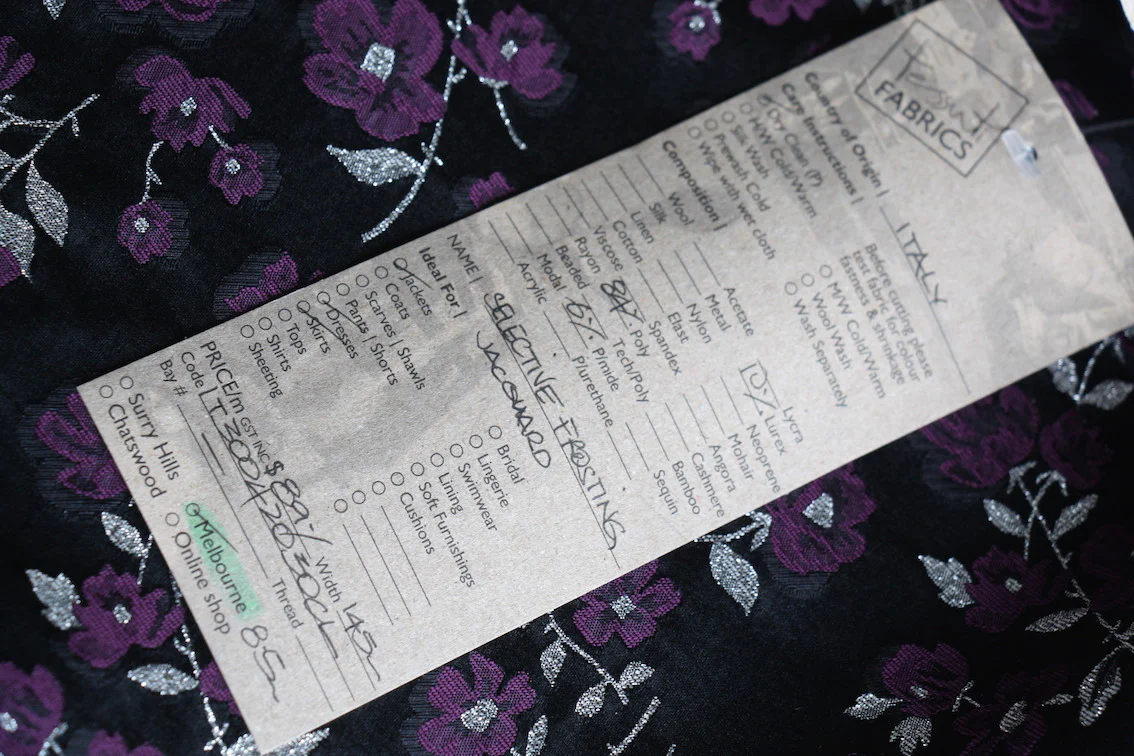 Tessuti
FABRICS
Country of Origin | ITALY
Care Instructions |
Dry Clean (P)
M/W Cold/Warm
Silk Wash
Prewash Cold
Wipe with wet cloth
Before cutting please
test fabric for colour
fastness & shrinkage
M/W Cold/Warm
Wool Wash
Wash Separately
Composition |
Wool
Silk
Linen
Cotton
Viscose
Rayon
Beaded
Modal
Acrylic
Acetate
Metal
Nylon
Elast
Spandex
84% Poly
Tech/Poly
6% P/mide
P/urethane
Lycra
10% Lurex
Neoprene
Mohair
Angora
Cashmere
Bamboo
Sequin
NAME | SELECTIVE FROSTING
JACQUARD
Ideal For |
Jackets
Coats
Scarves | Shawls
Pants | Shorts
Dresses
Skirts
Tops
Shirts
Sheeting
Bridal
Lingerie
Swimwear
Lining
Soft Furnishings
Cushions
PRICE/m GST INC $89.- Width 145
Code |
Bay #
Thread
Surry Hills
Chatswood
Melbourne 8.5m
Online shop